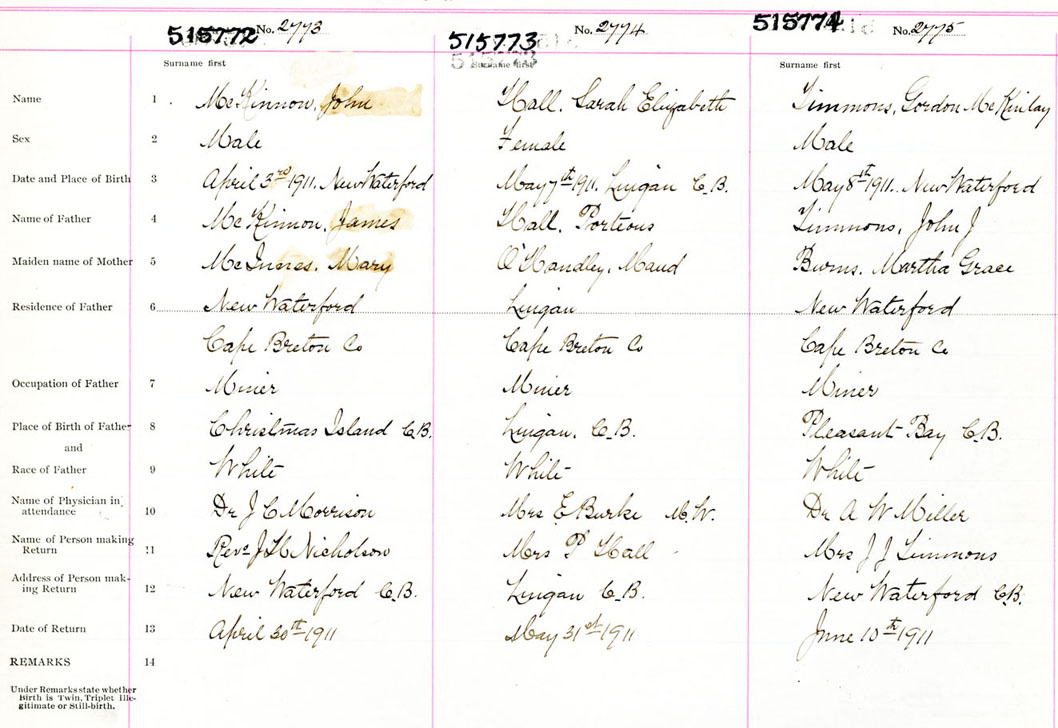 515772 No. 2773 515773 No. 2774 515774 No. 2775
Surname first Surname first Surname first
Name 1 McKinnon, John Hall, Sarah Elizabeth Timmons, Gordon McKinlay
Sex 2 Male Female Male
Date and Place of Birth 3 April 3rd 1911. New Waterford May 7th 1911. Lingan C.B. May 8th 1911. New Waterford
Name of Father 4 McKinnon, James Hall, Portious Timmons, John J
Maiden name of Mother 5 McInnes, Mary O'Handley, Maud Burns, Martha Grace
Residence of Father 6 New Waterford Lingan New Waterford
Cape Breton Co Cape Breton Co Cape Breton Co
Occupation of Father 7 Miner Miner Miner
Place of Birth of Father 8 Christmas Island C.B. Lingan, C.B. Pleasant Bay C.B.
and
Race of Father 9 White White White
Name of Physician in
attendance 10 Dr J C Morrison Mrs E Burke M.W. Dr A W Miller
Name of Person making
Return 11 Revd J H Nicholson Mrs P Hall Mrs J J Timmons
Address of Person mak-
ing Return 12 New Waterford C.B. Lingan C.B. New Waterford C.B.
Date of Return 13 April 30th 1911 May 31st 1911 June 10th 1911
REMARKS 14
Under Remarks state whether
Birth is Twin, Triplet Ille-
gitimate or Still-birth.